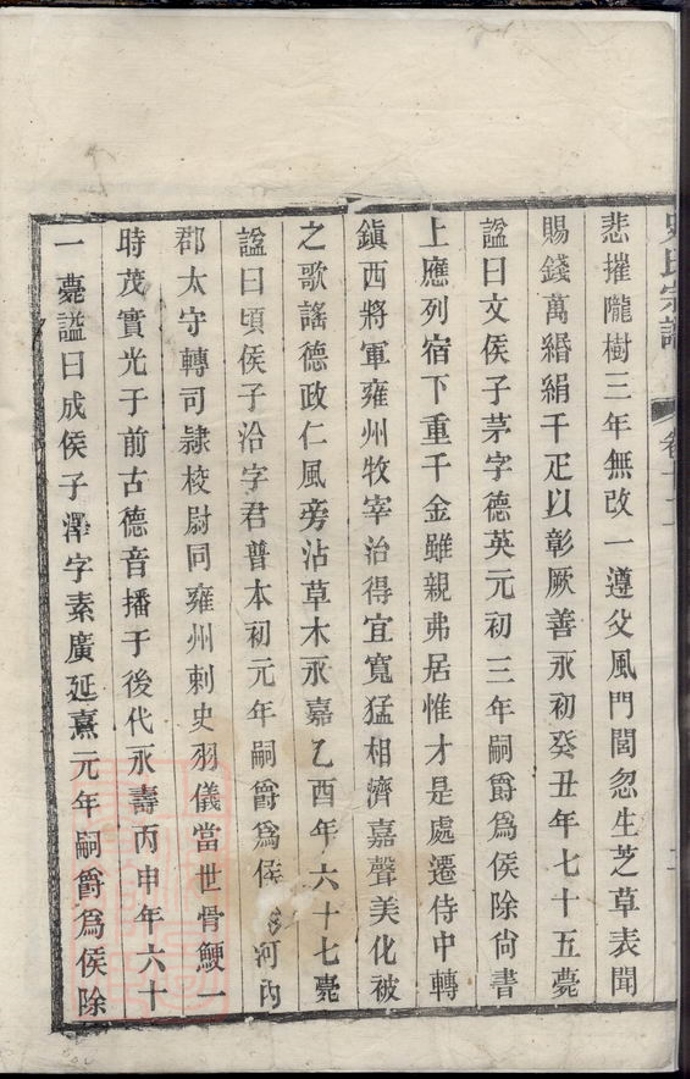 氏宗譜 卷十
悲摧隴樹三年無改一遵父風門閭忽生芝草表聞
賜錢萬緡絹千疋以彰厥善永初癸丑年七十五薨
諡曰文侯子茅字德英元初三年嗣爵爲侯除尙書
上應列宿下重千金雖親弗居惟才是處遷侍中轉
鎭西將軍雍州牧宰治得宜寬猛相濟嘉聲美化被
之歌謠德政仁風旁沾草木永嘉乙酉年六十七薨
諡曰頃侯子洽字君普本初元年嗣爵爲侯河內
郡太守轉司隷校尉同雍州刺史羽儀當世骨鯁一
時茂實光于前古德音播于後代永壽丙申年六十
一薨諡曰成侯子澤字素廣延熹元年嗣爵爲侯除